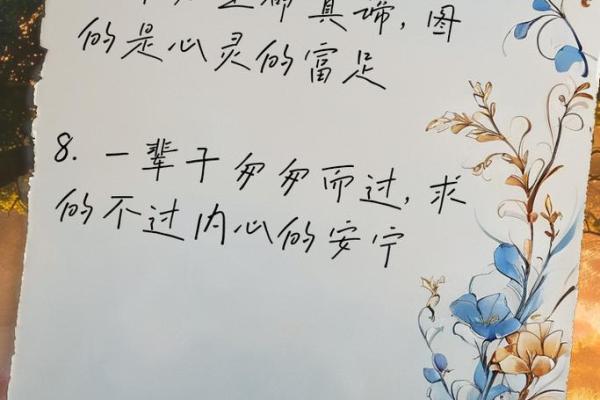 真谛,图
的是心灵的富足
8. 一辈子匆匆而过,求
的不过内心的安宁